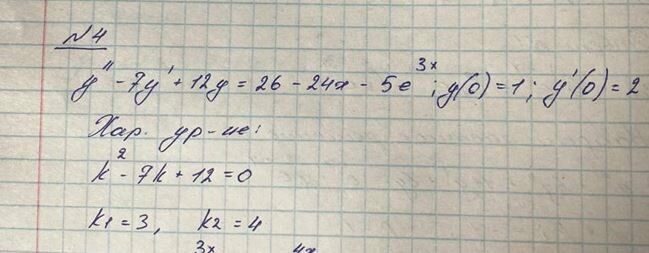 №4
y'' - 7y' + 12y = 26 - 24x - 5e^{3x}; y(0) = 1; y'(0) = 2
Хар. ур-ие:
k² - 7k + 12 = 0
k1 = 3, k2 = 4
3x 4x